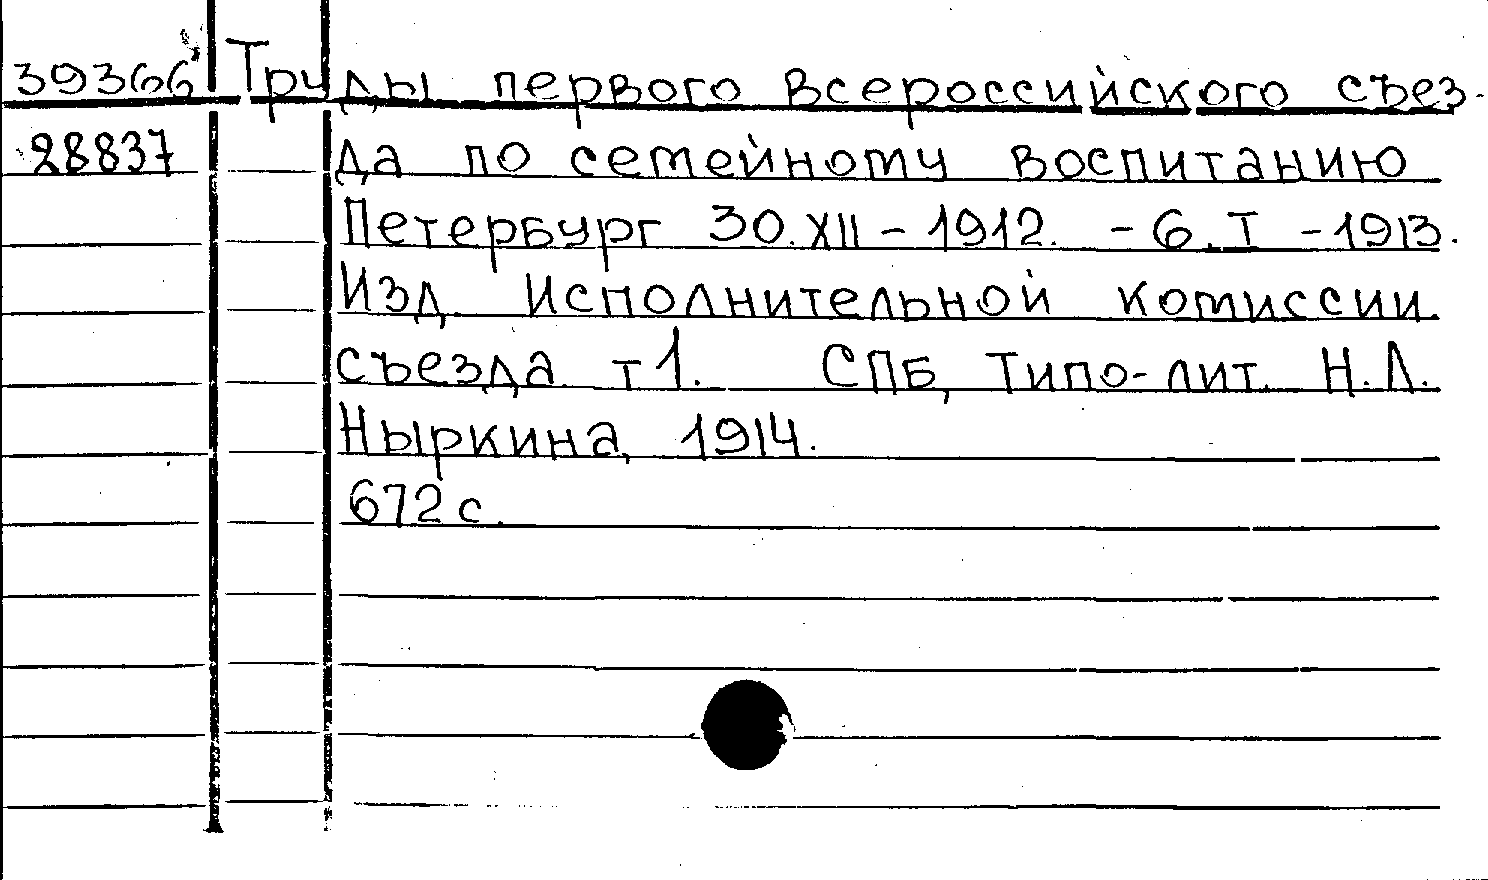 39366 Труды первого Всероссийского съез-
28837 да по семейному воспитанию
Петербург 30.XII – 1912. – 6.I – 1913.
Изд. Исполнительной комиссии
съезда т 1. СПБ, Типо-лит. Н.Л.
Ныркина, 1914.
672 с.